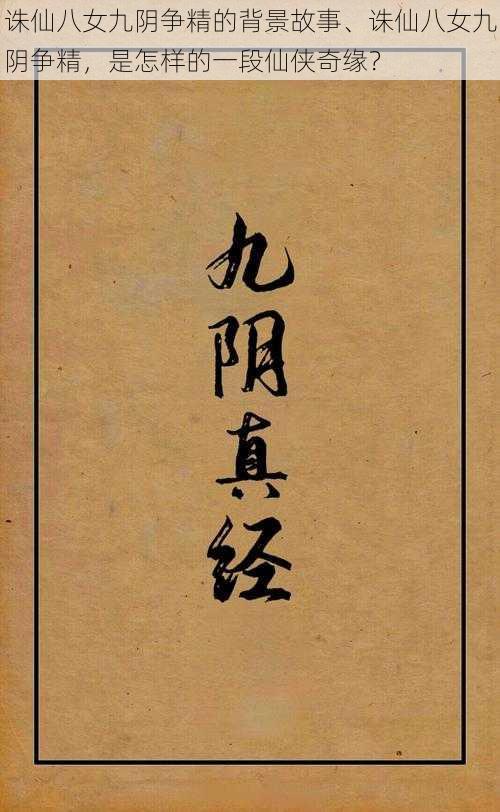 诛仙八女九阴争精的背景故事、诛仙八女九
阴争精，是怎样的一段仙侠奇缘？
九
阴
真
经